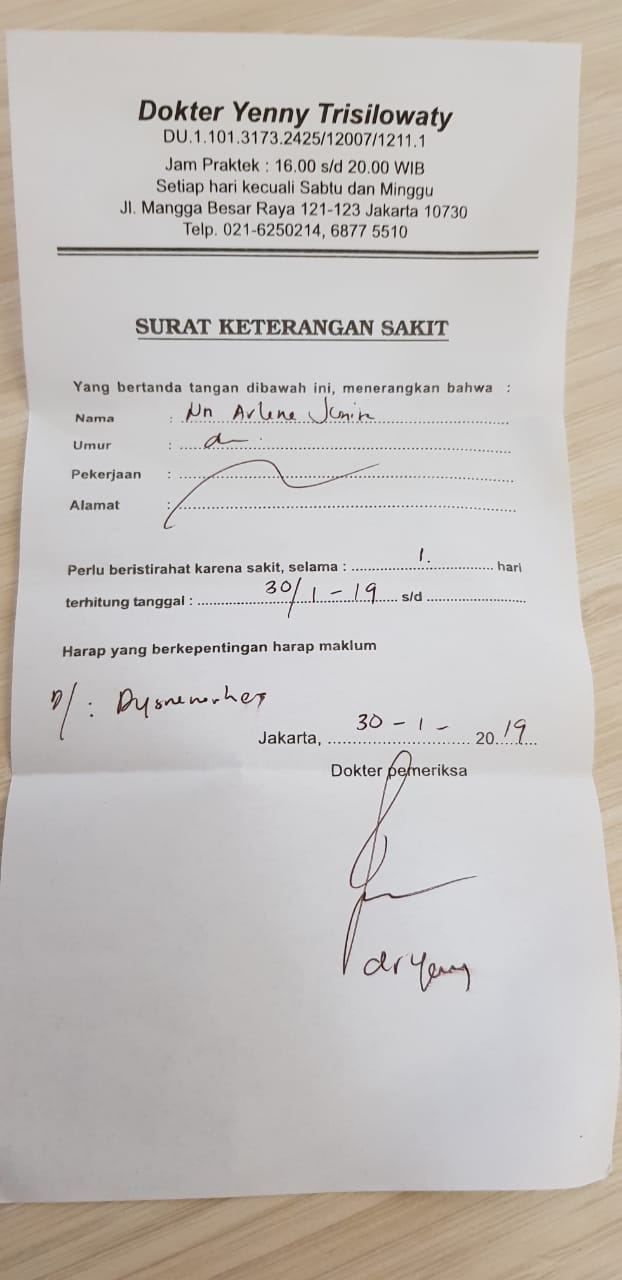 Dokter Yenny Trisilowaty
DU.1.101.3173.2425/12007/1211.1
Jam Praktek : 16.00 s/d 20.00 WIB
Setiap hari kecuali Sabtu dan Minggu
Jl. Mangga Besar Raya 121-123 Jakarta 10730
Telp. 021-6250214, 6877 5510
SURAT KETERANGAN SAKIT
Yang bertanda tangan dibawah ini, menerangkan bahwa :
Nama : Nn Arlene
Umur :
Pekerjaan :
Alamat :
Perlu beristirahat karena sakit, selama : 1. hari
terhitung tanggal : 30/1-19 s/d
Harap yang berkepentingan harap maklum
D/ :
Jakarta, 30-1- 2019
Dokter pemeriksa
dr Yenny